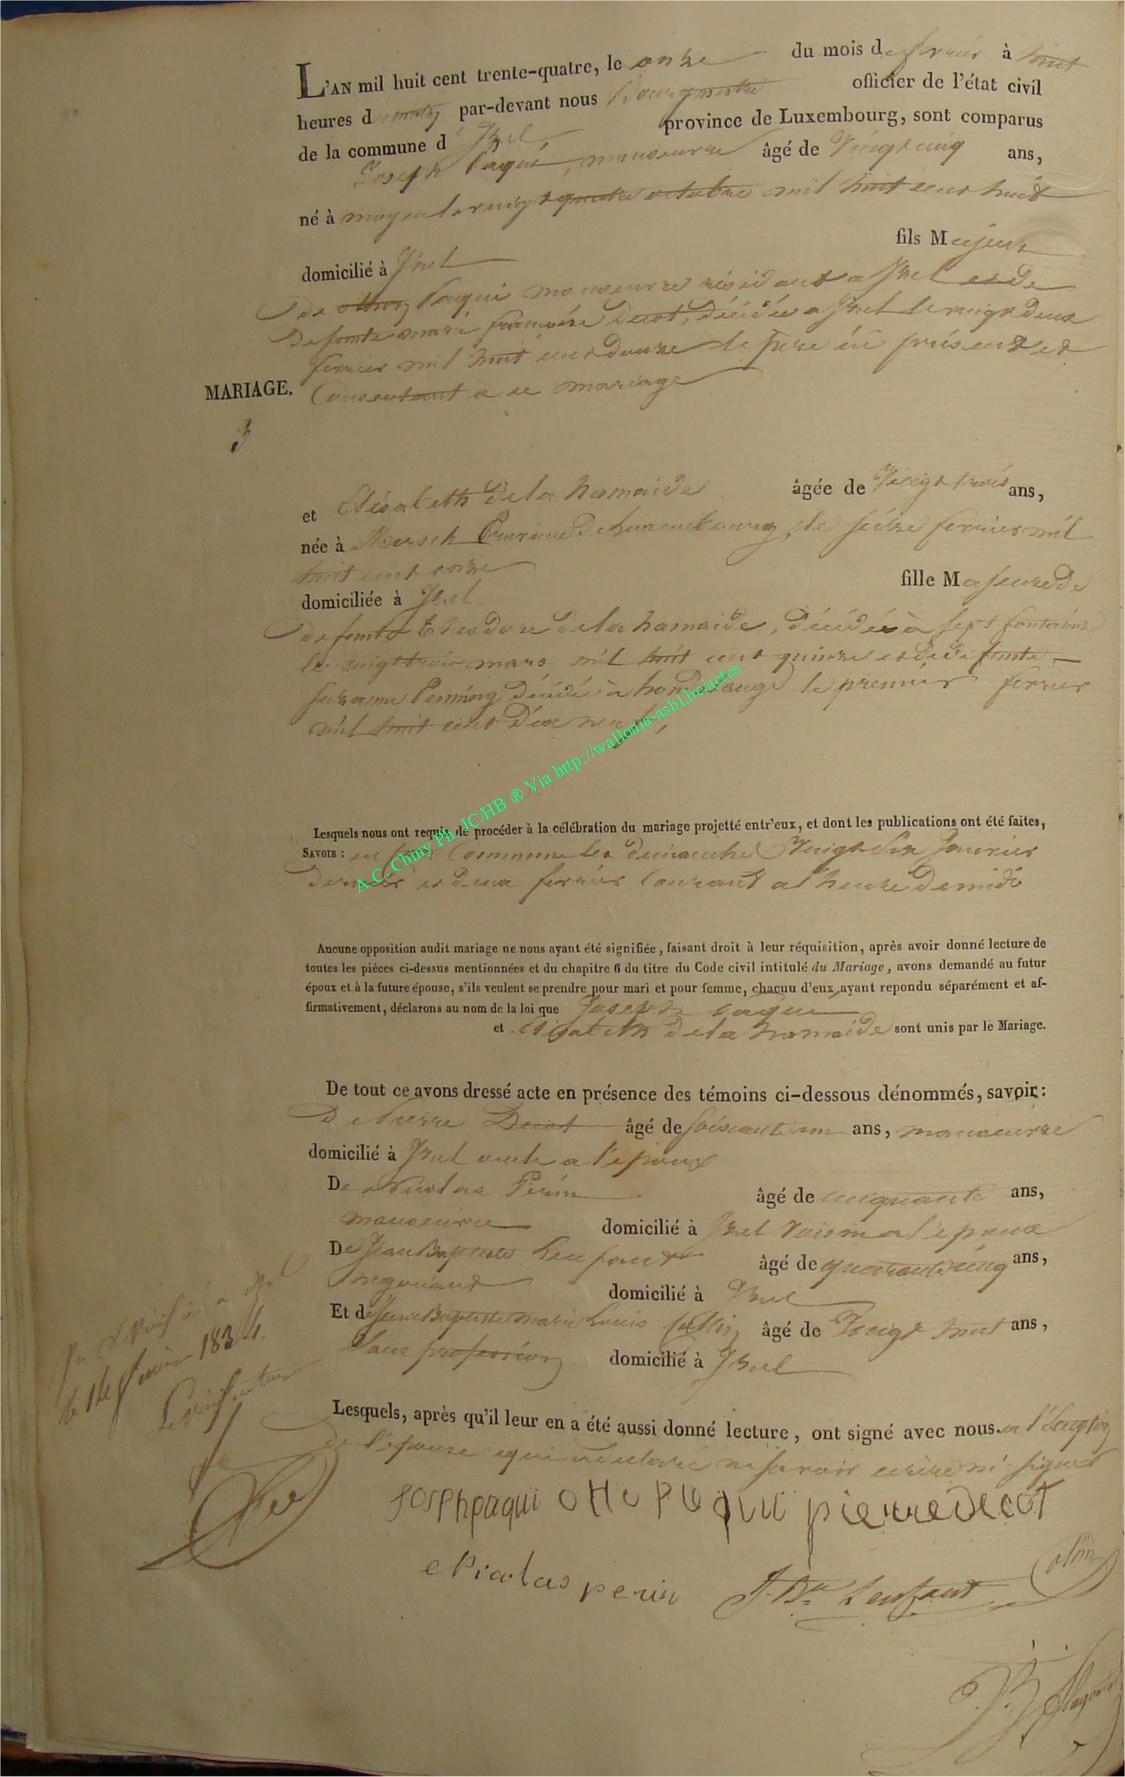 L'AN mil huit cent trente-quatre, le onze du mois de fevrier à huit
heures du matin par-devant nous Bourgmestre officier de l'état civil
de la commune d'Izel province de Luxembourg, sont comparus
Joseph Paqui, manoeuvre âgé de Vingt cinq ans,
né à moyen le vingt quatre octobre mil huit cent huit
domicilié à Izel fils Majeur
de otton Paqui manoeuvre résidant a Izel et de
defunte marie françoise Decot, décédée a Izel le vingt deux
fevrier mil huit cent douze le pere ici présent et
Consentant a ce mariage
MARIAGE.
3
et Elisabeth de la hamaide âgée de Vingt trois ans,
née à Mersch Province de Luxembourg, le seize fevrier mil
huit cent onze
domiciliée à Izel fille Majeure De
Defunt Theodore de la hamaide, décédé à sept fontaines
le vingt trois mars mil huit cent quinze et de defunte
susanne Penning décédée à hondelange le premier fevrier
mil huit cent Dix neuf,
A.C. Chiny Ph. JC/HB ® Via http://wallonia-asbl.be/actes
Lesquels nous ont requis de procéder à la célébration du mariage projetté entr'eux, et dont les publications ont été faites,
SAVOIR : en Commune les dimanche Vingt Six Janvier
dernier et deux fevrier courant a l'heure de midi
Aucune opposition audit mariage ne nous ayant été signifiée, faisant droit à leur réquisition, après avoir donné lecture de
toutes les pièces ci-dessus mentionnées et du chapitre 6 du titre du Code civil intitulé du Mariage, avons demandé au futur
époux et à la future épouse, s'ils veulent se prendre pour mari et pour femme, chacun d'eux ayant repondu séparément et af-
firmativement, déclarons au nom de la loi que Joseph Paqui
et Elisabeth de la hamaide sont unis par le Mariage.
De tout ce avons dressé acte en présence des témoins ci-dessous dénommés, savoir :
De Pierre Decot âgé de soixante un ans, manoeuvre
domicilié à Izel oncle a l'epoux
De Nicolas Perin âgé de cinquante ans,
manoeuvre domicilié à Izel Voisin a l'epoux
De Jean Baptiste Lenfant âgé de quarante cinq ans,
negociant domicilié à Izel
Et de Jean Baptiste marie Louis âgé de Vingt huit ans,
Sans profession domicilié à Izel
Lesquels, après qu'il leur en a été aussi donné lecture, ont signé avec nous a l'Exception
de l'epouse qui a declaré ne savoir ecrire ni signer
le 14 fevrier 1834.
Josphpaqui otto Paqui pierre decot
Nicolas perin J. Bte Lenfant